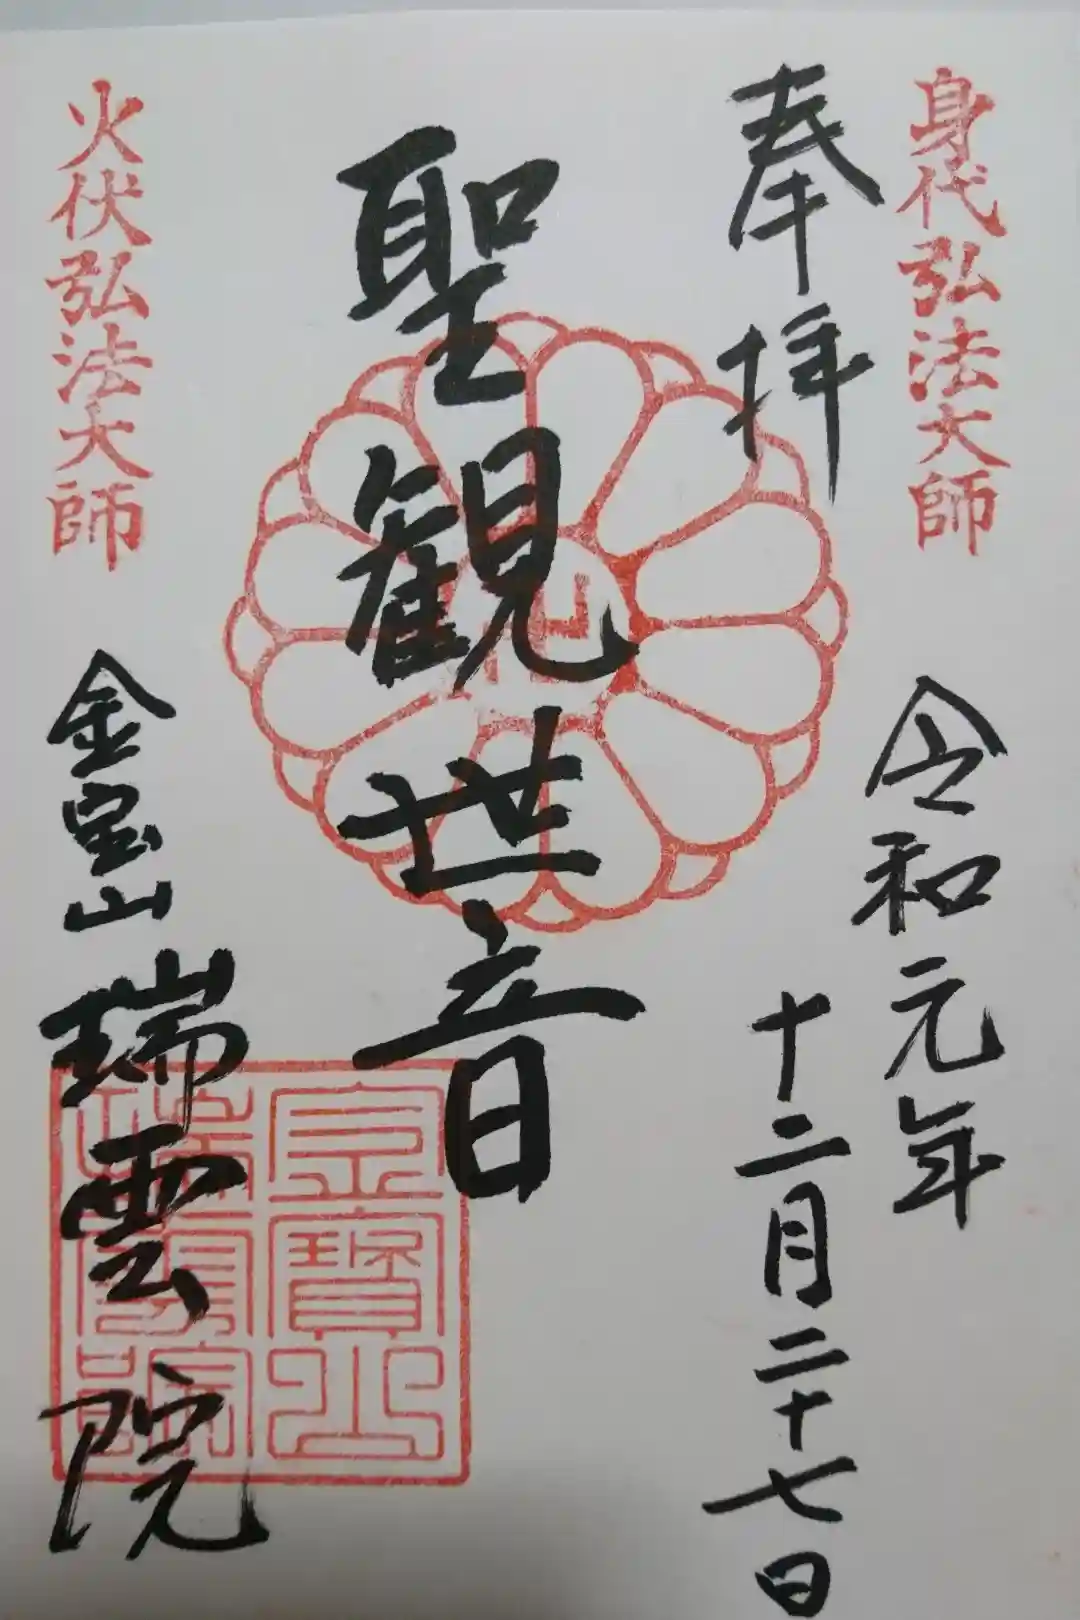 身代弘法大師
奉拝
令和元年
十二月二十七日
聖観世音
火伏弘法大師
金宝山
瑞雲院
金寶山
瑞雲院